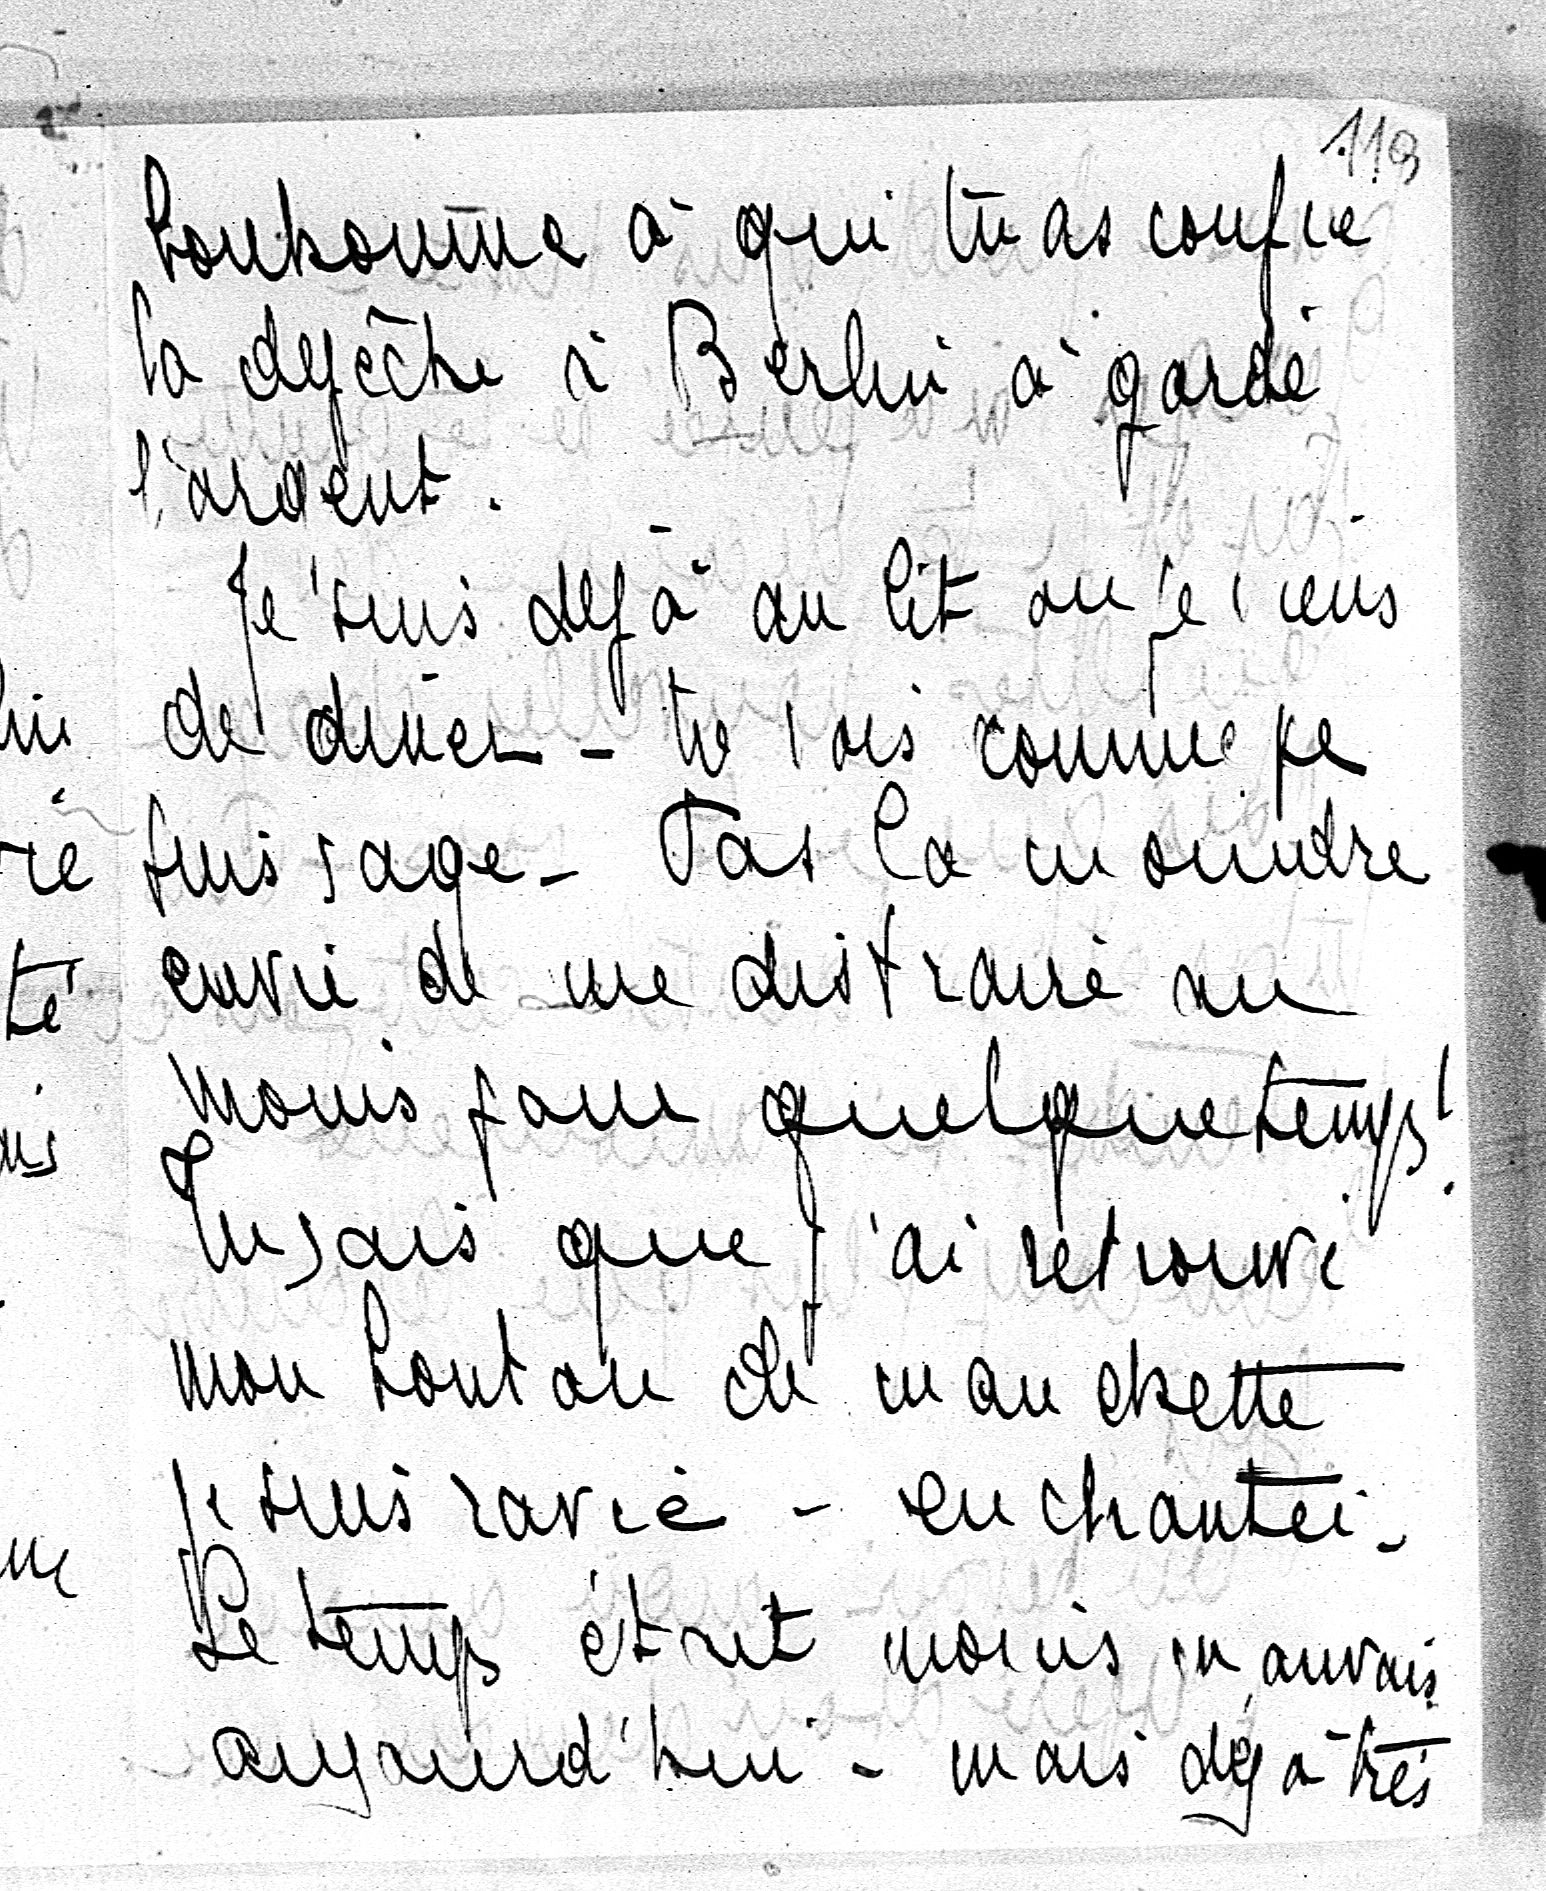 119
bonhomme à qui tu as confié
la dépêche à Berlin a gardé
l'argent.
Je suis déjà au lit où je viens
de diner - tu vois comme je
suis sage - Pas la moindre
envie de me distraire au
moins pour quelque temps!
Tu sais que j'ai retrouvé
mon bouton de manchette
je suis ravie - enchantée -
Le temps était moins mauvais
aujourd'hui - mais déjà très